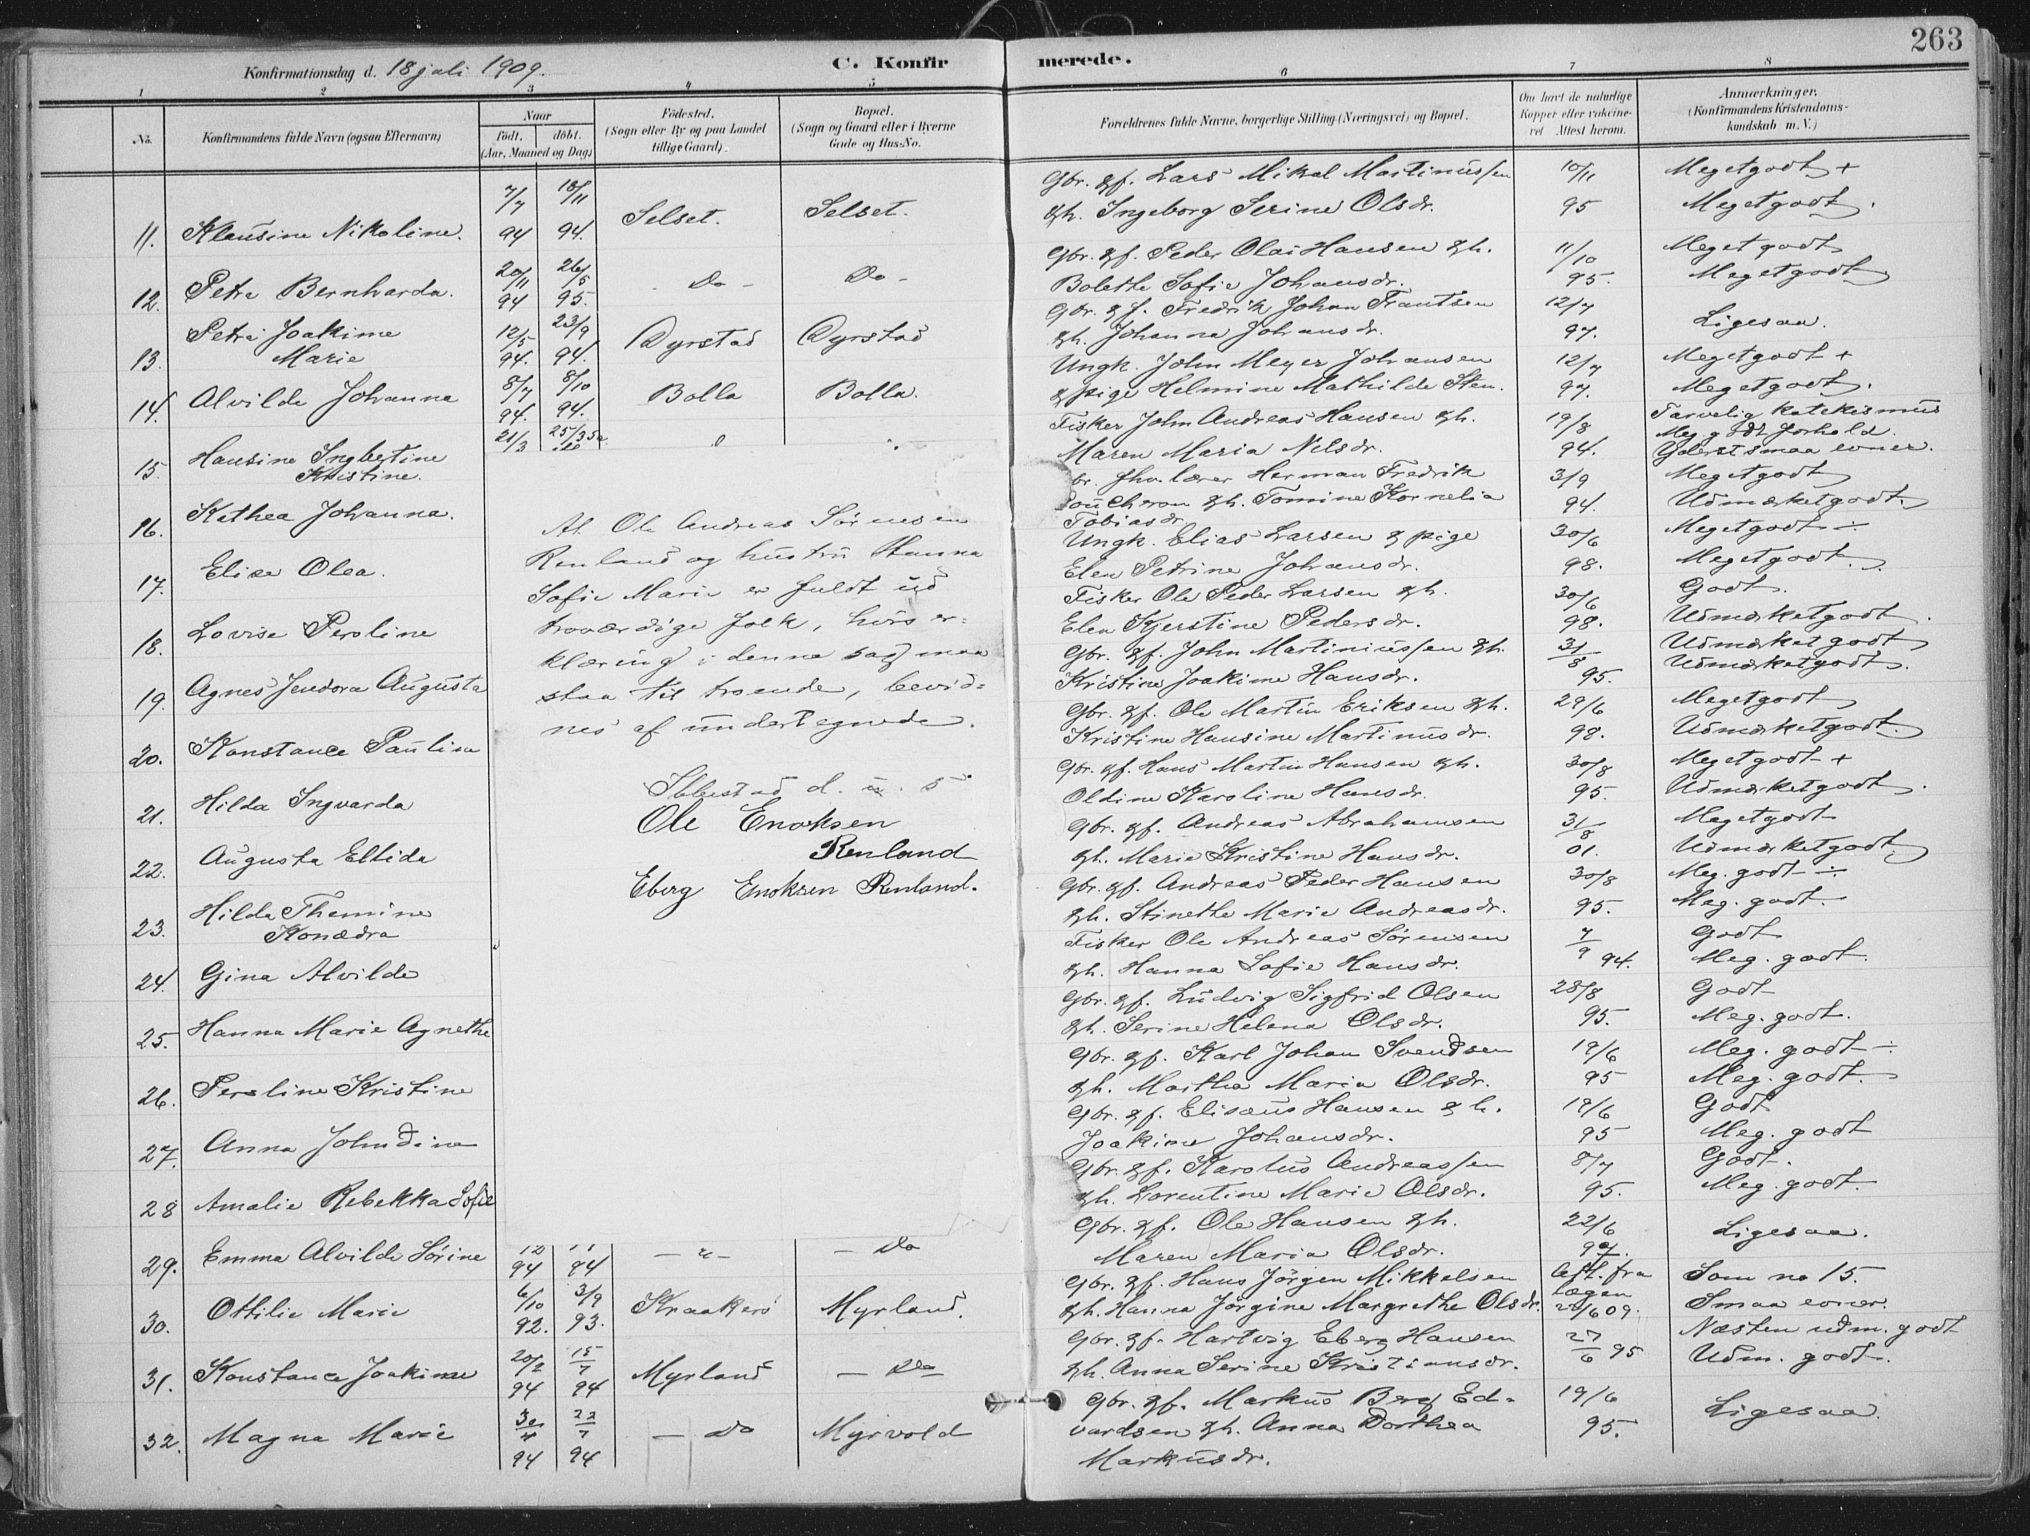 263
Konfirmationsdag d. 18 juli 1909.
C. Konfirmerede.
1 2 3 4 5 6 7 8
No.
Konfirmandens fulde Navn (ogsaa Efternavn)
Naar
födt. döbt.
(Aar, Maaned og Dag)
Födested.
(Sogn eller By og paa Landet
tillige Gaard).
Bopæl.
(Sogn og Gaard eller i Byerne
Gade og Hus-No.
Forældrenes fulde Navne, borgerlige Stilling (Næringsvei) og Bopæl.
Om havt de naturlige
Kopper eller vakcine-
ret Attest herom.
Anmærkninger.
(Konfirmandens Kristendoms-
kundskab m. V.)
11. Klausine Nikoline. 7/7 94 18/11 94. Selset. Selset.
Gbr. gf. Lars Mikal Martinussen 10/11 Megetgodt +
gh. Ingeborg Serine Olsdr. 95 Megetgodt.
12. Petra Bernharda. 20/11 94 26/5 95. - Do - Do -
Gbr. gf. Peder Olai Hansen gh. 11/10 Meget godt
Bolethe Sofie Johansdr. 95. Megetgodt
13. Petra Joakime
Marie 12/5 94. 23/9 94. Dyrstad Dyrstad
Gbr. gf. Fredrik Johan Frantsen 12/7
gh. Johanna Johansdr. 97. Ligesaa.
14. Alvilde Johanna 8/7 94. 8/10 94. Bolla Bolla.
Ungk. John Meyer Johansen 12/7 Megetgodt +
g pige Helmine Mathilde Sten. 97. Megetgodt.
15. Hansine Ingbertine
Kristine. 21/3
Fisker John Andreas Hansen gh. 19/8 Tarvelig katekismus
Meg. godt forhold.
Maren Maria Nilsdr. 94. Yderst smaa evner.
16. Kathea Johanna.
br. fhv. lærer Herman Fredrik 3/9 Megetgodt
Foucheron gh. Tomine Kornelia 94. Udmærketgodt.
Tobiasdr.
17. Elise Olea.
Ungk. Elias Larsen g pige 30/6 Megetgodt ÷
Elen Petrine Johansdr. 98. Megetgodt.
18. Lovise Peroline
Fisker Ole Peder Larsen gh. 30/6 Godt.
Elen Kjerstine Pedersdr. 98. Udmærketgodt.
19. Agnes Jendora Augusta
Gbr. gf. John Martiniussen gh. 31/8 Udmærketgodt
Kristine Joakime Hansdr. 95. Udmærketgodt.
20. Konstance Paulisa
Gbr. gf. Ole Martin Eriksen gh. 29/6 Megetgodt
Kristine Hansine Martinusdr. 98. Udmærketgodt.
21. Hilda Ingvarda
Gbr. gf. Hans Martin Hansen gh. 30/8 Megetgodt +
Oldine Karoline Hansdr. 95. Udmærketgodt.
22. Augusta Eltida
Gbr. gf. Andreas Abrahamsen 31/8 Megetgodt
gh. Marie Kristine Hansdr. 01. Udmærketgodt.
23. Hilda Themine
Konædra
Gbr. gf. Andreas Peder Hansen 30/8 Meg. godt ÷
gh. Stinethe Marie Andreasdr. 95. Meg. godt.
24. Gina Alvilde
Fisker Ole Andreas Sørensen 7/9 Godt
gh. Hanna Sofie Hansdr. 94. Meg. godt.
25. Hanna Marie Agnethe
Gbr. gf. Ludvig Sigfrid Olsen 28/8 Godt
gh. Serine Helena Olsdr. 95. Meg. godt.
26. Persline Kristine
Gbr. gf. Karl Johan Svendsen 19/6 Meg. godt ÷
gh. Martha Maria Olsdr. 95 Meg. godt.
27. Anna Johndine
Gbr. gf. Elisæus Hansen g h. 19/6 Godt
Joakime Johansdr. 95 Meg. godt
28 Amalie Rebekka Sofie
Gbr. gf. Karolus Andreassen 8/7 Godt.
gh. Lorentine Marie Olsdr. 95. Meg. godt.
29. Emma Alvilde Sørine 94 94 - " - - Do
Gbr. gf. Ole Hansen gh. 22/6
Maren Maria Olsdr. Ligesaa.
30. Ottilie Marie 6/10 92. 3/9 93. Kraakerö Myrland.
Gbr. gf. Hans Jörgen Mikkelsen Aft. fra Som no 15.
lægen
gh. Hanna Jörgine Margrethe Olsdr. 24/6 09. Smaa evner.
31. Konstance Joakime 20/2 94 15/7 94 Myrland - Do -
Gbr. gf. Hartvig Eberg Hansen 27/6 95 Næsten udm. godt
gh. Anna Serine Kristiansdr. Udm. godt.
32. Magna Marie 94 94 - Do Myrvold
Gbr. gf. Markus Berg Ed-
vardsen gh. Anna Dorthea 19/6 95. Ligesaa
Markusdr.
At Ole Andreas Sørensen
Renland og hustru Hanna
Sofie Marie er fuldt ud
troværdige folk, hvis er-
klæring i denne sag maa
staa til troende, bevid-
nes af undertegnede.
Ibbestad d. u. s
Ole Enoksen
Renland
Eberg Enoksen Renland.